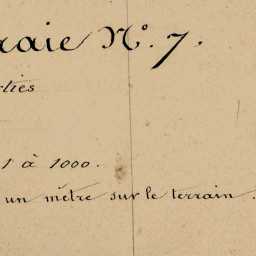 raie Nº. 7.
rties
1 à 1000.
un mètre sur le terrain.